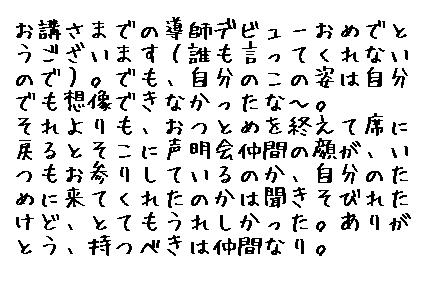 お講さまでの導師デビューおめでと
うございます（誰も言ってくれない
ので）。でも、自分のこの姿は自分
でも想像できなかったな～。
それよりも、おつとめを終えて席に
戻るとそこに声明会仲間の顔が、い
つもお参りしているのか、自分のた
めに来てくれたのかは聞きそびれた
けど、とてもうれしかった。ありが
とう、持つべきは仲間なり。